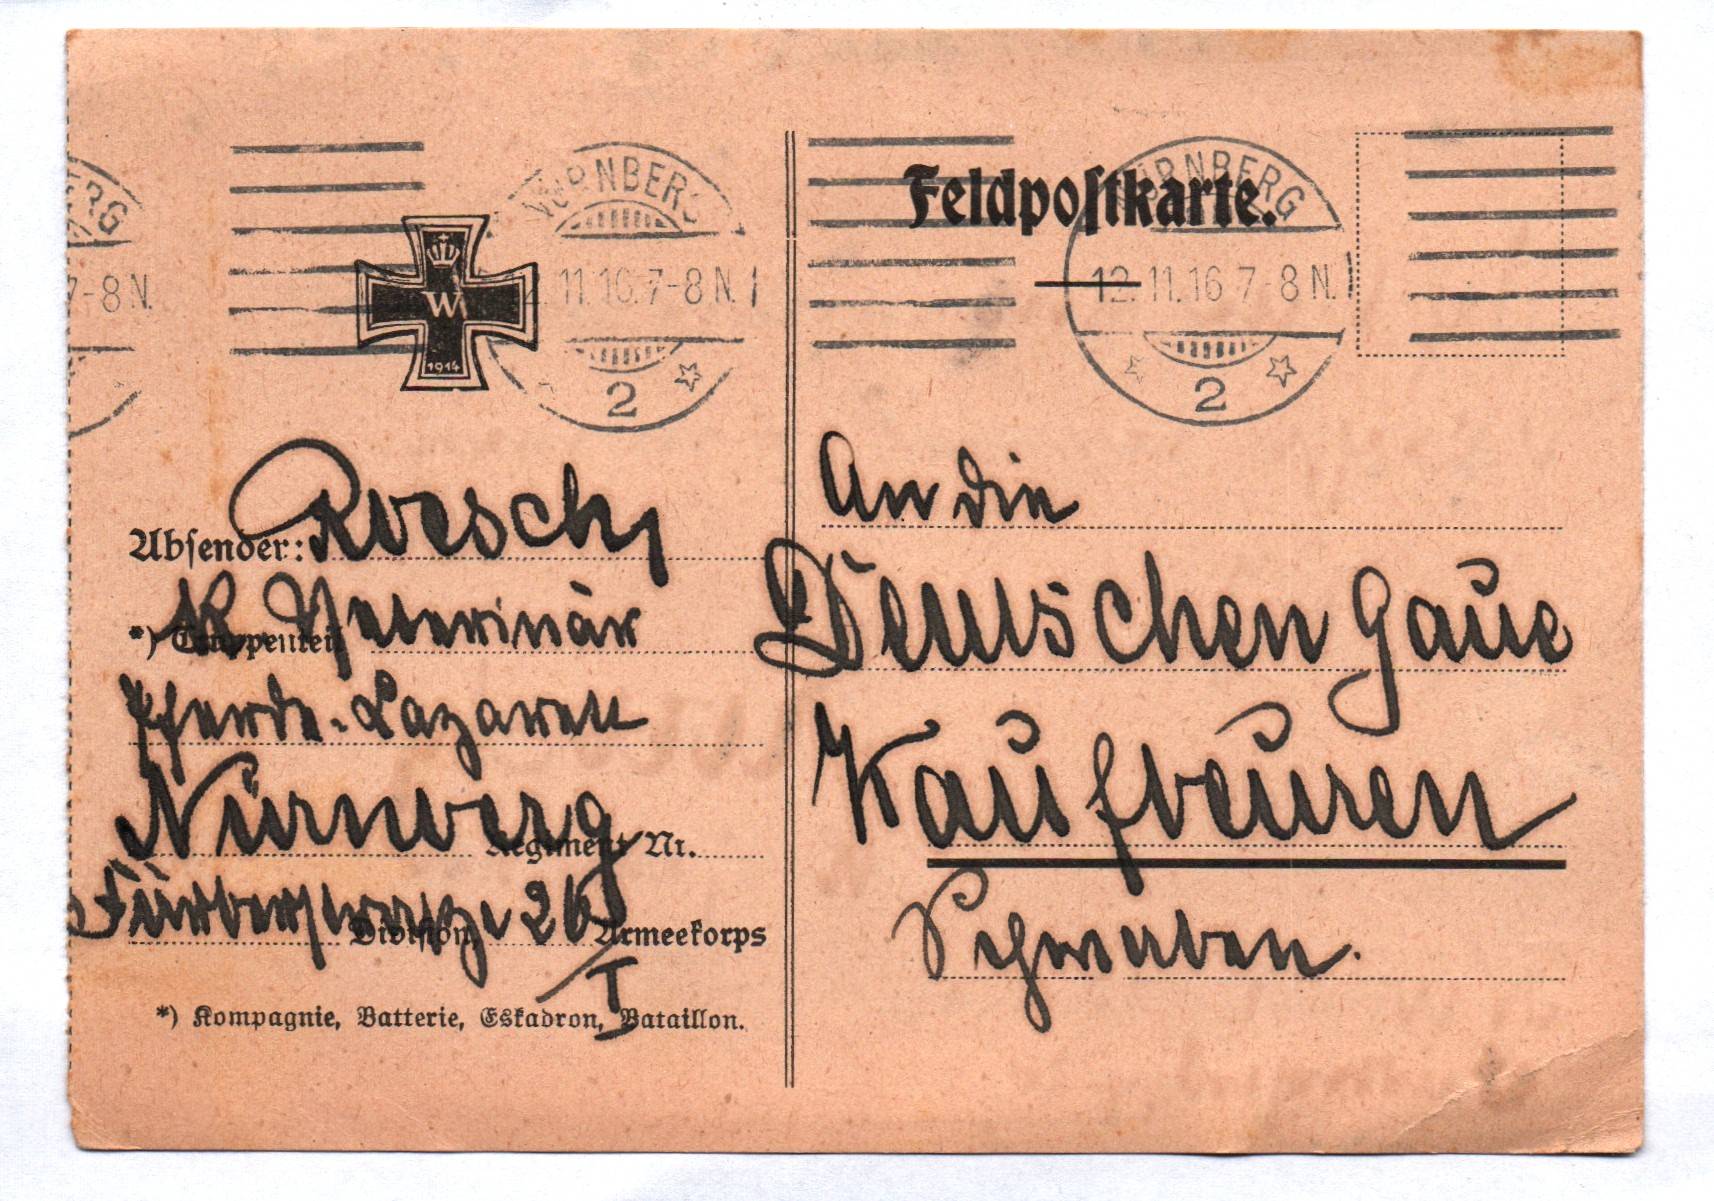 NÜRNBERG
12.11.16 7-8 N.
2
ERG
7-8 N.
NÜRNBERG
12.11.16 7-8 N.
2
W
1914
Feldpostkarte.
Absender: Roesch,
*) Truppenteil
K. Veterinär
Pferde-Lazarett
Nürnberg
Regiment Nr.
Fürtherstrasse 26/I
Division, Armeekorps
*) Kompagnie, Batterie, Eskadron, Bataillon.
An die
Deutschen Gaue
Kaufbeuren
Schwaben.